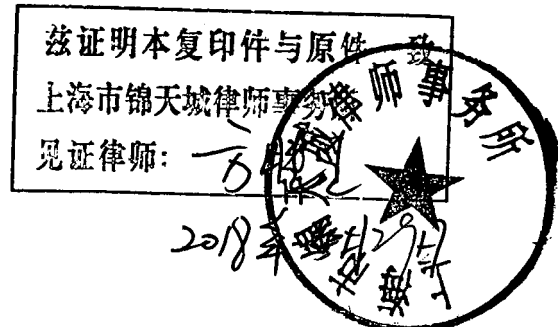 兹证明本复印件与原件一致
上海市锦天城律师事务所
见证律师:
2018年
上海市锦天城律师事务所